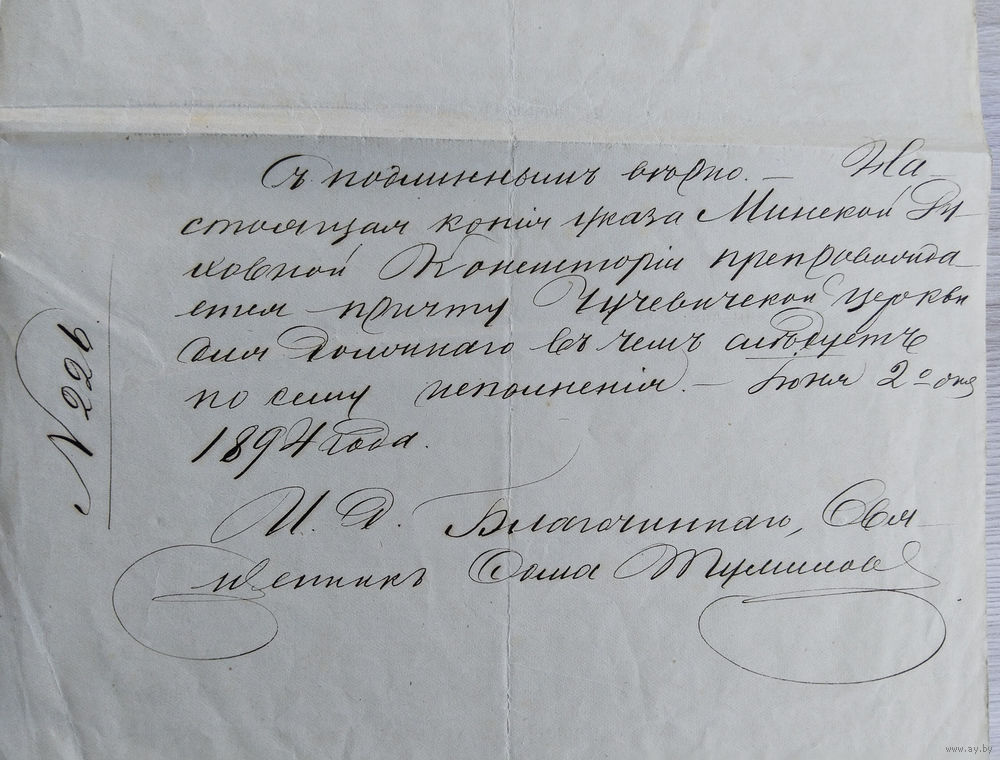 Съ подлиннымъ вѣрно. — На-
стоящая копія указа Минской Ду-
ховной Консисторіи препровожда-
ется причту Чучевичской церкви
для должнаго въ чемъ слѣдуетъ
по сему исполненія. — Іюня 2го дня
1894 года.
И. Д. Благочиннаго, Свя-
щенникъ Ѳома
№ 226
www.ay.by